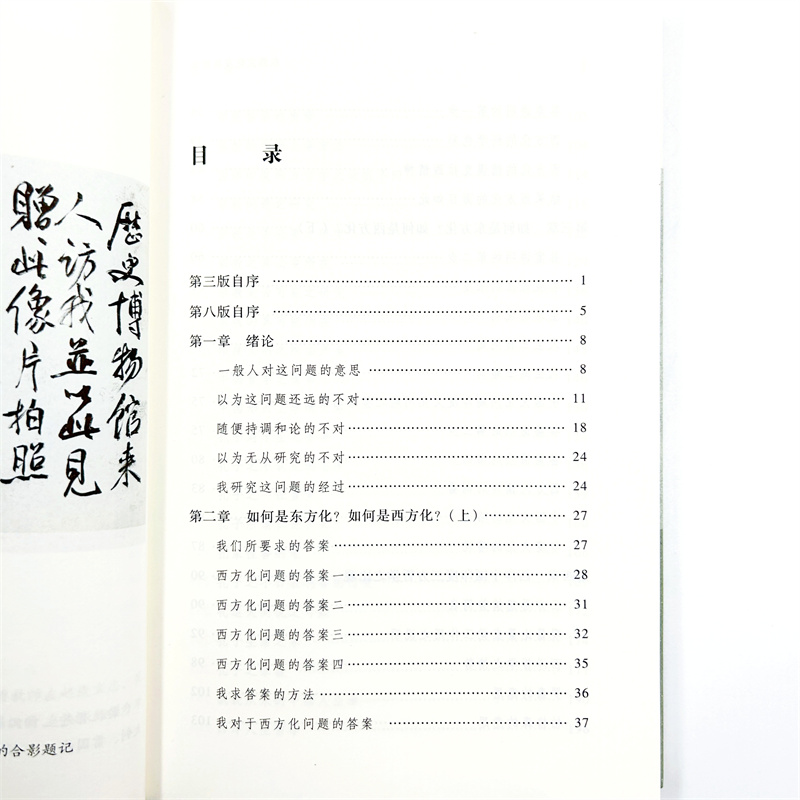 歷史博物館来
人访我並以此見
贈此像片拍照
的合影题记
目 录
第三版自序 …… 1
第八版自序 …… 5
第一章 绪论 …… 8
一般人对这问题的意思 …… 8
以为这问题还远的不对 …… 11
随便持调和论的不对 …… 18
以为无从研究的不对 …… 24
我研究这问题的经过 …… 24
第二章 如何是东方化？如何是西方化？（上） …… 27
我们所要求的答案 …… 27
西方化问题的答案一 …… 28
西方化问题的答案二 …… 31
西方化问题的答案三 …… 32
西方化问题的答案四 …… 35
我求答案的方法 …… 36
我对于西方化问题的答案 …… 37